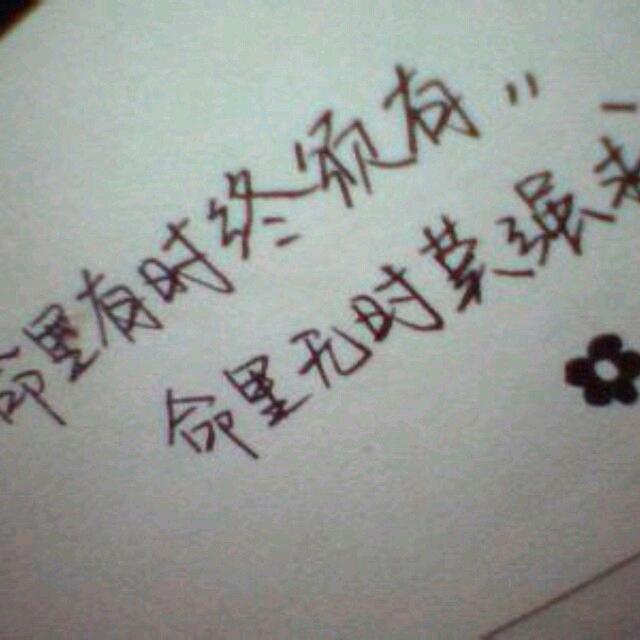 命里有时终须有"
命里无时莫强求